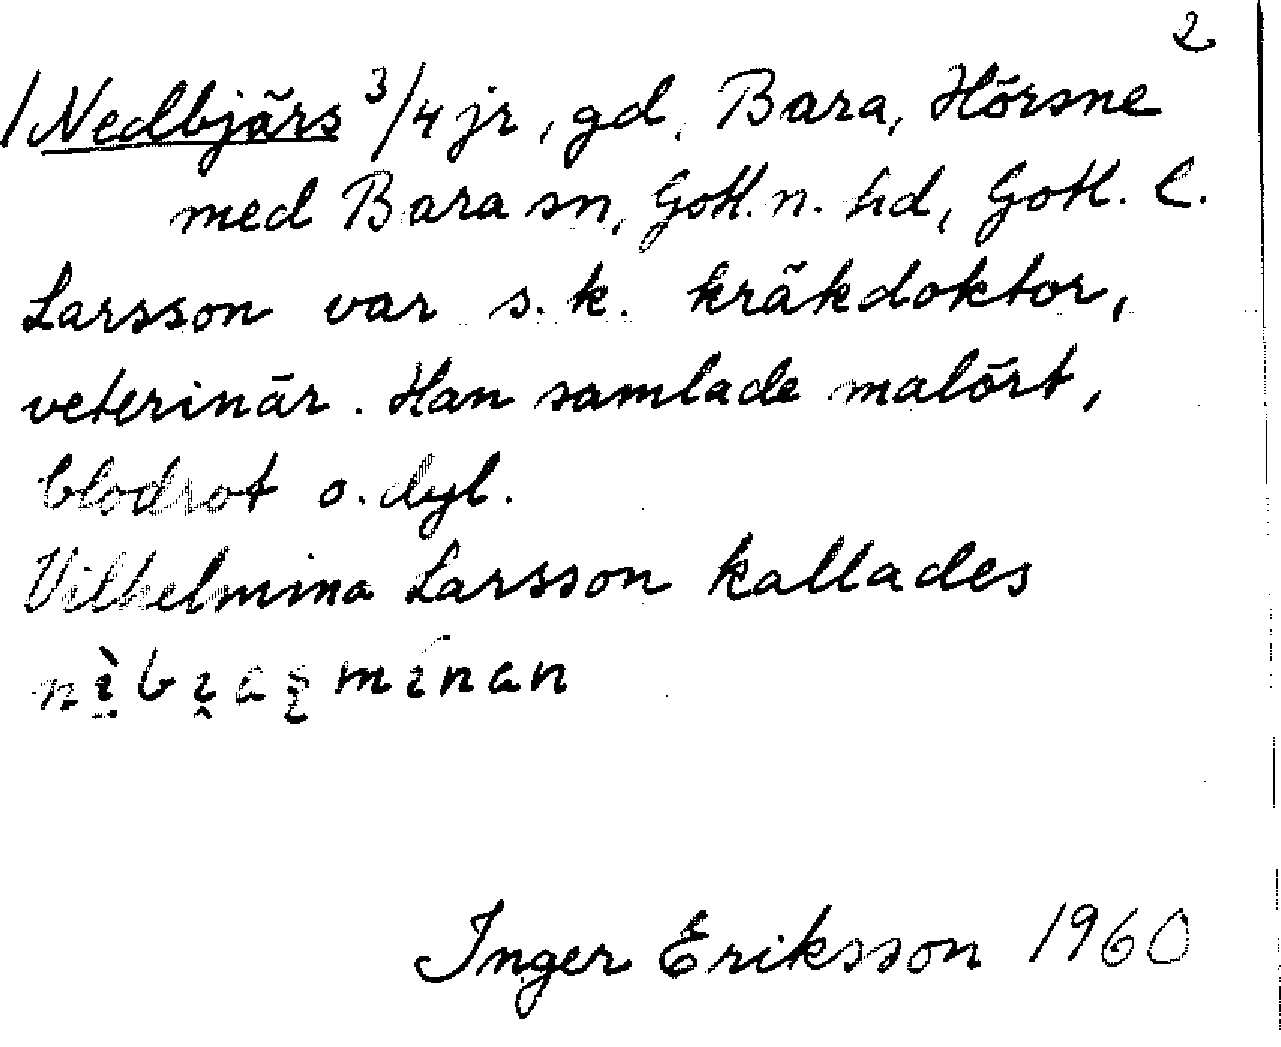 2
/Nedbjärs 3/4 jr, gd, Bara, Hörsne
med Bara sn, Gotl. n. hd, Gotl. l.
Larsson var s.k. kräkdoktor,
veterinär. Han samlade malört,
blodrot o. dyl.
Vilhelmina Larsson kallades
Inger Eriksson 1960